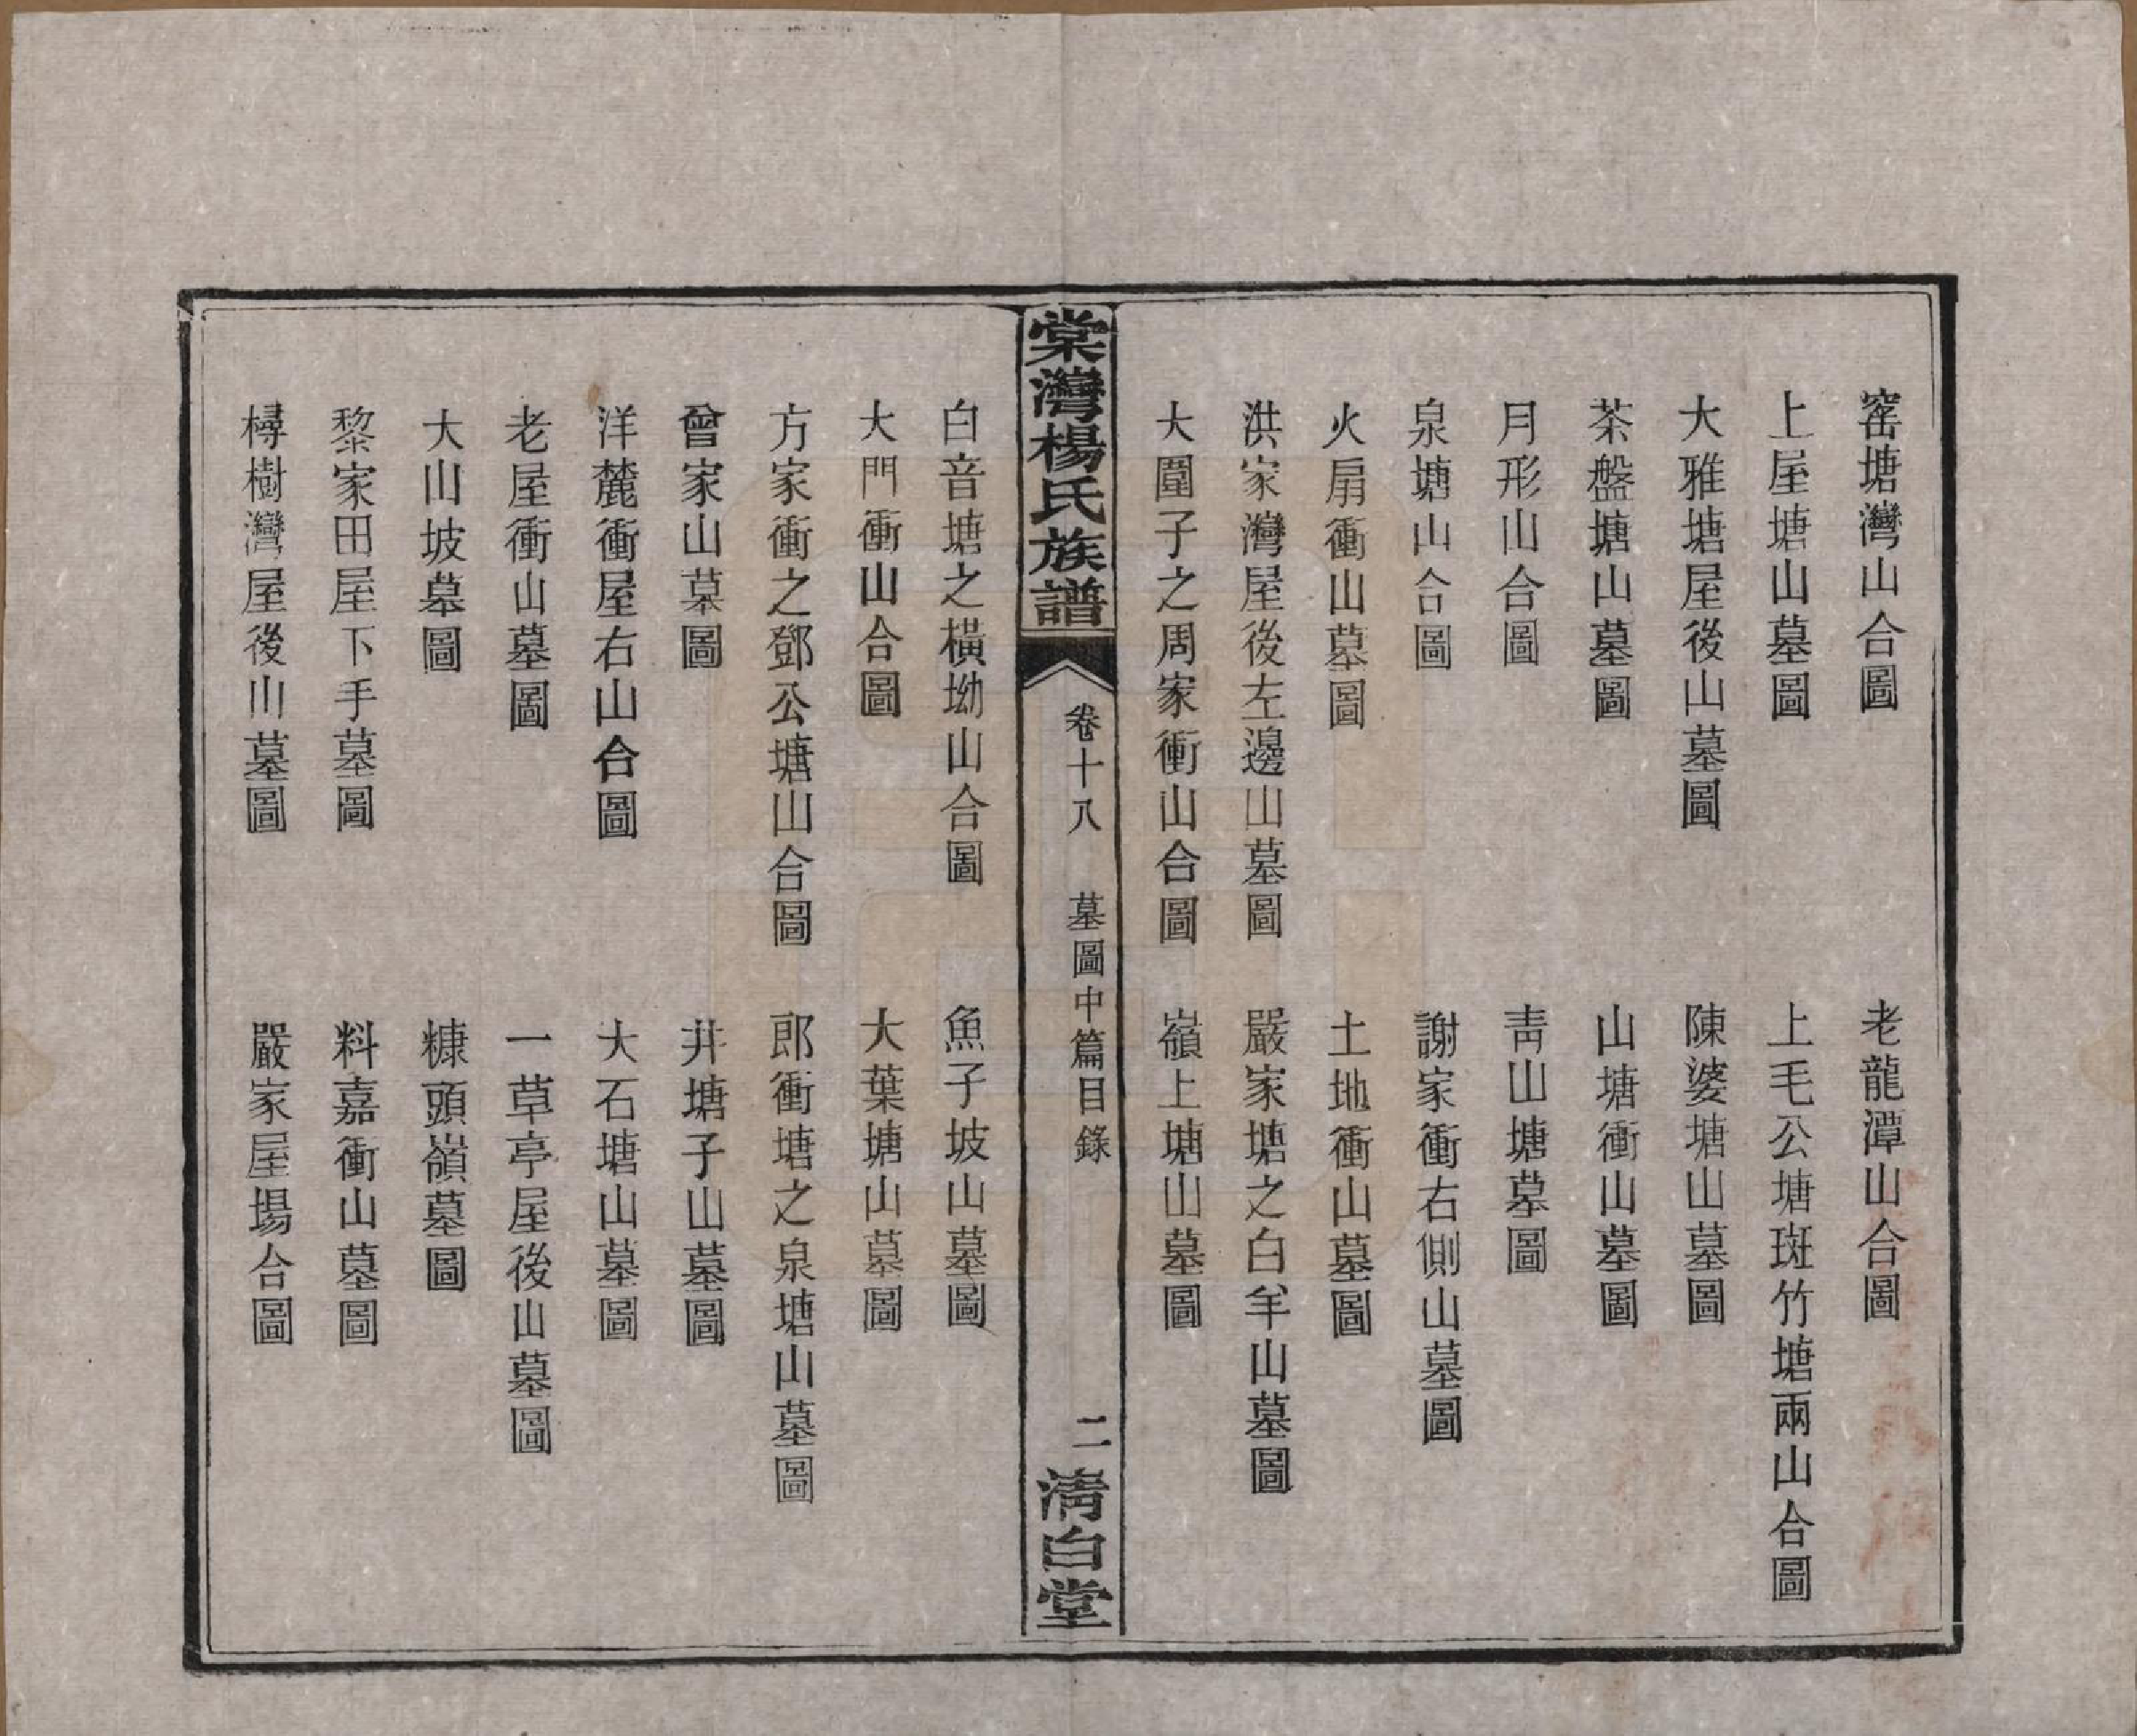 窰塘灣山合圖　老龍潭山合圖
上屋塘山墓圖　上毛公塘斑竹塘兩山合圖
大雅塘屋後山墓圖　陳婆塘山墓圖
茶盤塘山墓圖　山塘衝山墓圖
月形山合圖　靑山塘墓圖
泉塘山合圖　謝家衝右側山墓圖
火扇衝山墓圖　土地衝山墓圖
洪家灣屋後左邊山墓圖　嚴家塘之白羊山墓圖
大圍子之周家衝山合圖　嶺上塘山墓圖
棠灣楊氏族譜　卷十八　墓圖中篇目錄　二　淸白堂
白音塘之橫坳山合圖　魚子坡山墓圖
大門衝山合圖　大葉塘山墓圖
方家衝之鄧公塘山合圖　郎衝塘之泉塘山墓圖
曾家山墓圖　井塘子山墓圖
洋麓衝屋右山合圖　大石塘山墓圖
老屋衝山墓圖　一草亭屋後山墓圖
大山坡墓圖　糠頭嶺墓圖
黎家田屋下手墓圖　料嘉衝山墓圖
樳樹灣屋後山墓圖　嚴家屋場合圖